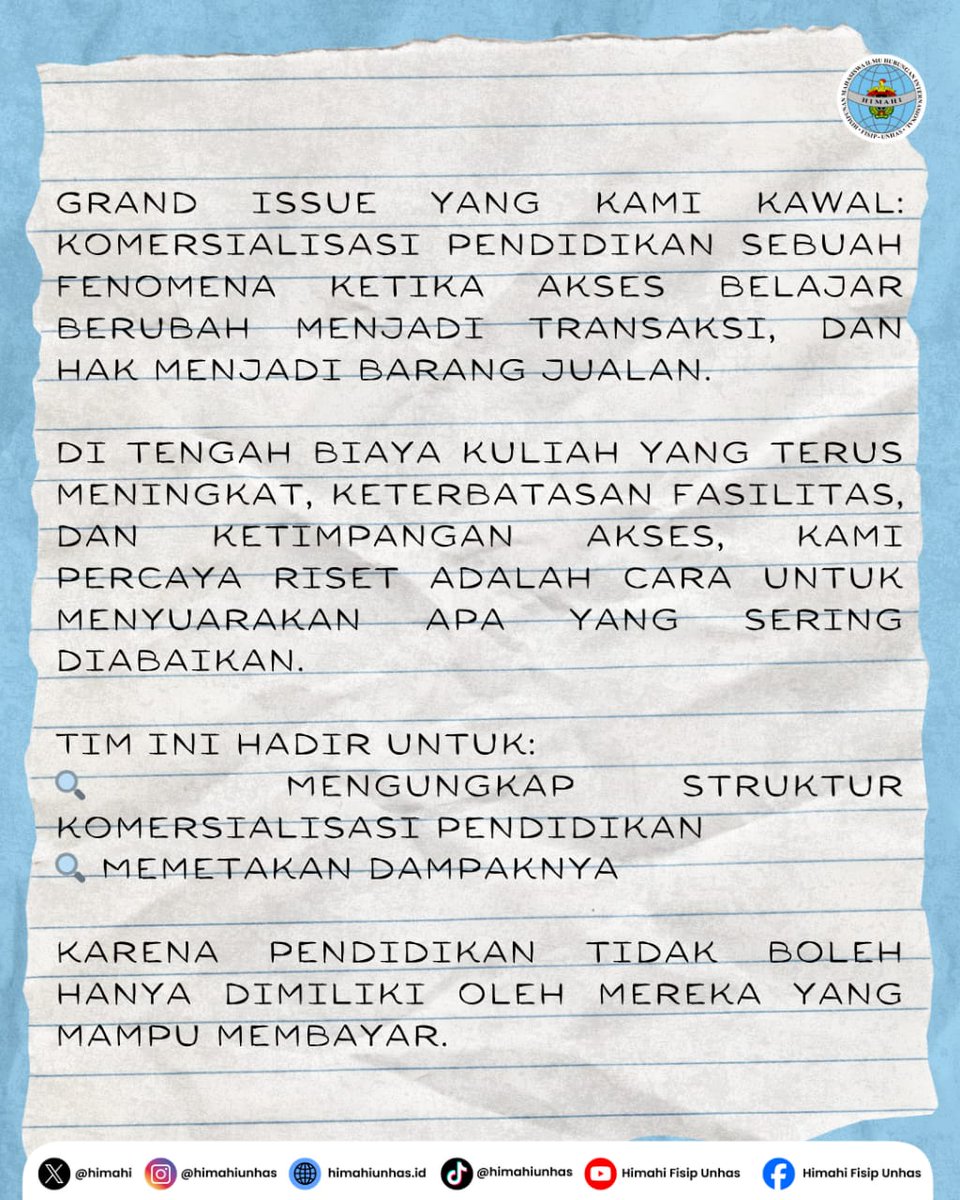 HIMPUNAN MAHASISWA ILMU HUBUNGAN INTERNASIONAL
HIMAHI
FISIP - UNHAS
GRAND ISSUE YANG KAMI KAWAL:
KOMERSIALISASI PENDIDIKAN SEBUAH
FENOMENA KETIKA AKSES BELAJAR
BERUBAH MENJADI TRANSAKSI, DAN
HAK MENJADI BARANG JUALAN.
DI TENGAH BIAYA KULIAH YANG TERUS
MENINGKAT, KETERBATASAN FASILITAS,
DAN KETIMPANGAN AKSES, KAMI
PERCAYA RISET ADALAH CARA UNTUK
MENYUARAKAN APA YANG SERING
DIABAIKAN.
TIM INI HADIR UNTUK:
🔍 MENGUNGKAP STRUKTUR
KOMERSIALISASI PENDIDIKAN
🔍 MEMETAKAN DAMPAKNYA
KARENA PENDIDIKAN TIDAK BOLEH
HANYA DIMILIKI OLEH MEREKA YANG
MAMPU MEMBAYAR.
@himahi @himahiunhas himahiunhas.id @himahiunhas Himahi Fisip Unhas Himahi Fisip Unhas